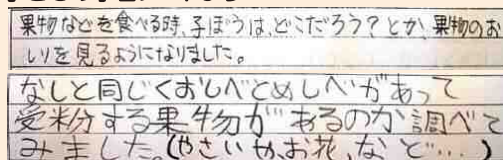 果物などを食べる時、子ぼうは、どこだろう？とか、果物のお
しりを見るようになりました。
なしと同じくおしべとめしべがあって
受粉する果物があるのか調べて
みました。(やさいや、お花、など…)